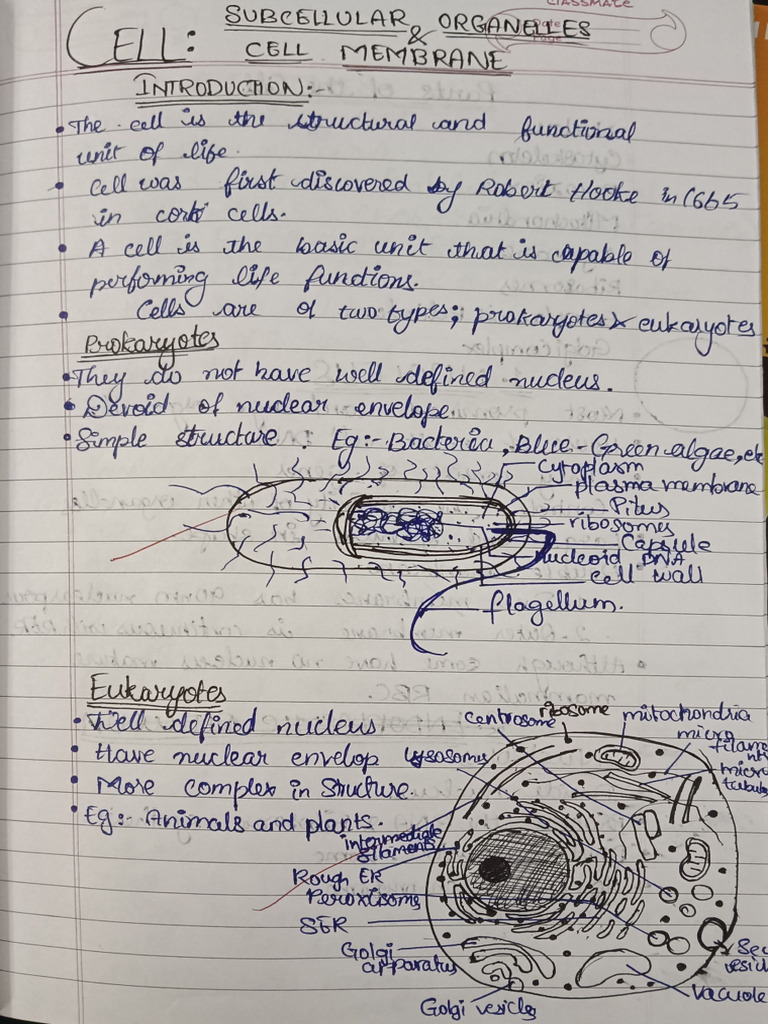 CLASSMATE
CELL: SUBCELLULAR ORGANELLES
& CELL MEMBRANE
INTRODUCTION:-
• The cell is the structural and functional
unit of life.
• Cell was first discovered by Robert Hooke in 1665
in cork cells.
• A cell is the basic unit that is capable of
performing life functions.
• Cells are of two types; prokaryotes & eukaryotes
Prokaryotes
• They do not have well defined nucleus.
• Devoid of nuclear envelope.
• Simple structure. Eg:- Bacteria, Blue-Green algae, etc
Cytoplasm
plasma membrane
Pilus
ribosomes
Capsule
nucleoid DNA
cell wall
flagellum.
Eukaryotes
• Well defined nucleus.
• Have nuclear envelop
• More complex in Structure.
• Eg:- Animals and plants.
centrosome
ribosome
mitochondria
micro
filame
nts
micro
tubul
Lysosomes
intermediate
filaments
Rough ER
Peroxisome
SER
Golgi
apparatus
Golgi vesicles
Sec
vesicl
Vacuole